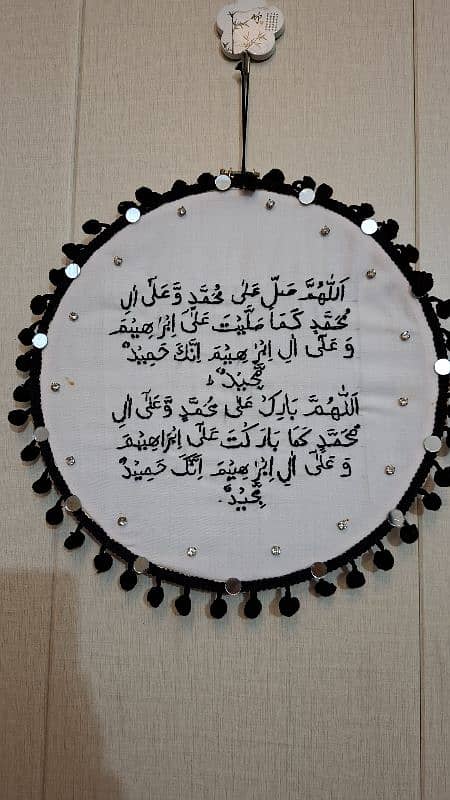 اَللّٰهُمَّ صَلِّ عَلٰى مُحَمَّدٍ وَّعَلٰٓى اٰلِ
مُحَمَّدٍ كَمَا صَلَّيْتَ عَلٰٓى اِبْرٰهِيْمَ
وَ عَلٰٓى اٰلِ اِبْرٰهِيْمَ اِنَّكَ حَمِيْدٌ
مَّجِيْدٌ ؕ
اَللّٰهُمَّ بَارِكْ عَلٰى مُحَمَّدٍ وَّعَلٰٓى اٰلِ
مُحَمَّدٍ كَمَا بَارَكْتَ عَلٰٓى اِبْرَاهِيْمَ
وَ عَلٰٓى اٰلِ اِبْرٰهِيْمَ اِنَّكَ حَمِيْدٌ
مَّجِيْدٌ.